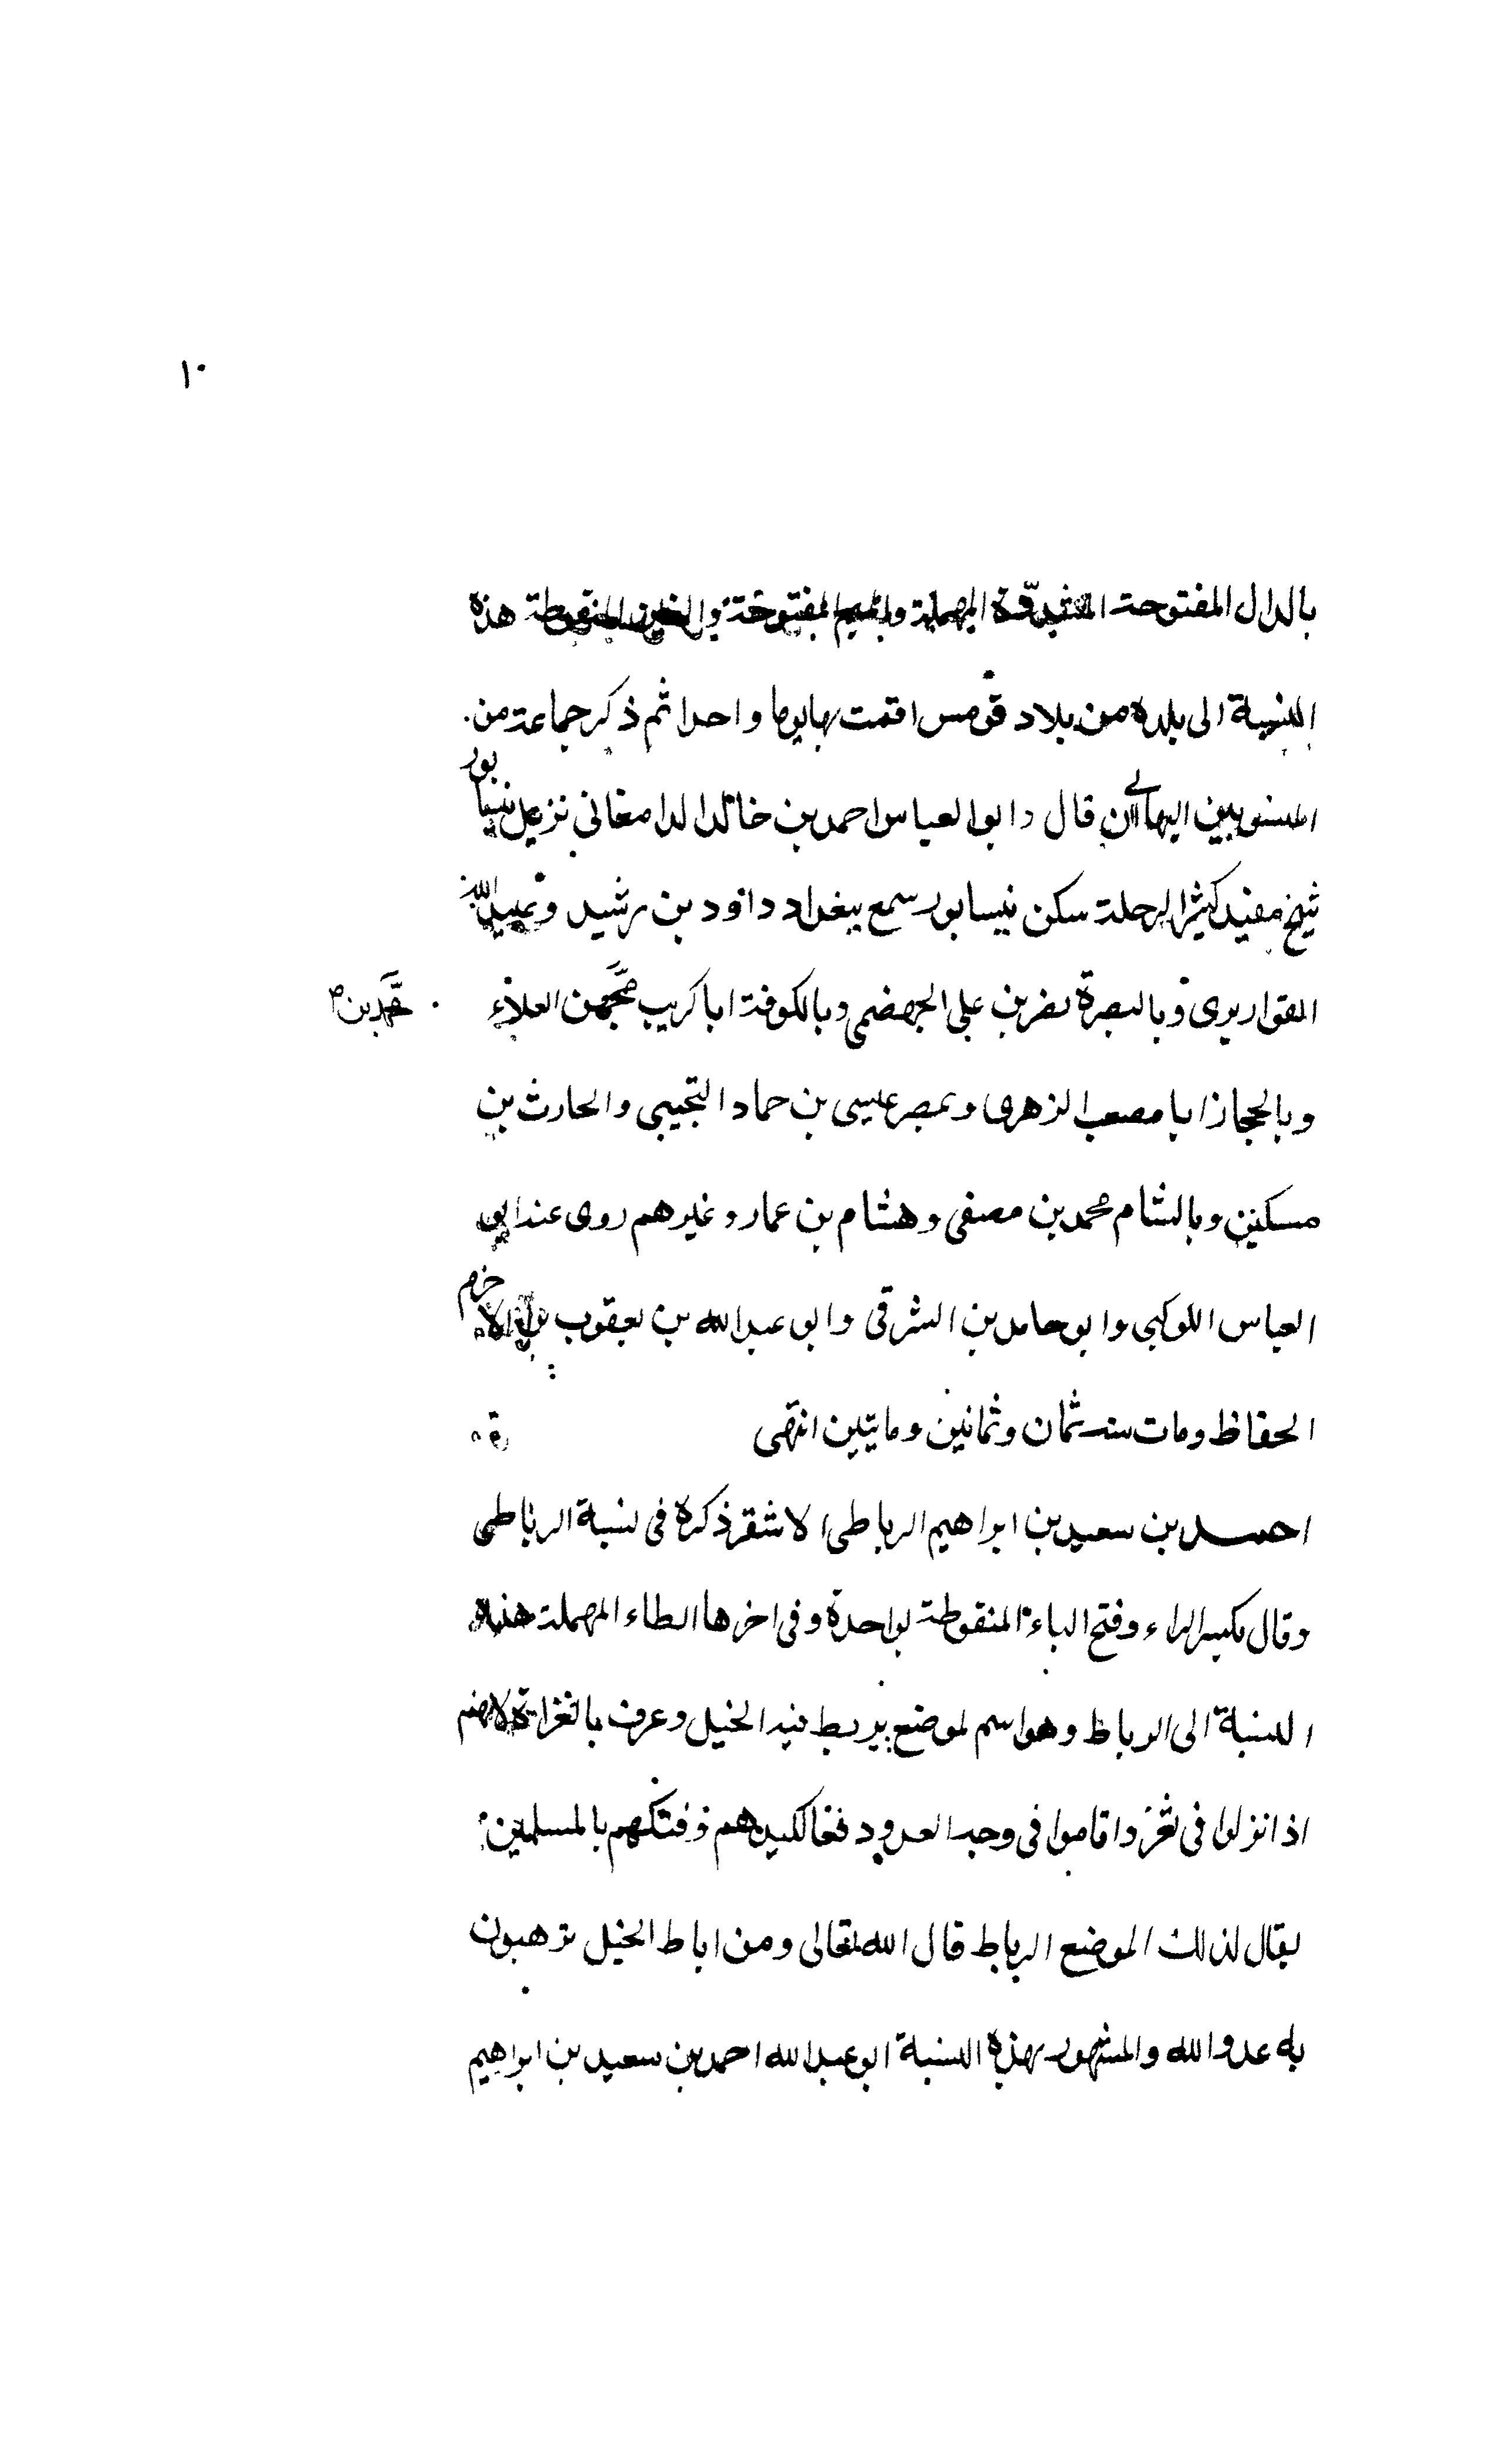 ١٠
بالدال المفتوحة المشددة المهملة والميم المفتوحة والغين المنقوطة هذه
النسبة الى بلدة من بلاد قومس اقمت بها يوما واحدا ثم ذكر جماعة من
المنسوبين اليها الى ان قال وابو العباس احمد بن خالد الدامغانى نزيل نيسابور
شيخ مفيد كثير الرحلة سكن نيسابور سمع ببغداد داؤد بن رشيد وعبيد الله
القواريرى وبالبصرة نصر بن على الجهضمى وبالكوفة ابا كريب محمد بن العلاء
محمد بن
وبالحجاز ابا مصعب الزهرى وبمصر عيسى بن حماد التجيبى والحارث بن
مسكين وبالشام محمد بن مصفى وهشام بن عمار وغيرهم روى عنه ابى
العباس اللوكبى وابو حامد بن الشرقى وابو عبد الله بن يعقوب بن الاخرم
الحفاظ ومات سنة ثمان وثمانين ومايتين انتهى
احمد بن سعيد بن ابراهيم الرباطى الاشقر ذكره فى نسبة الرباطى
وقال بكسر الراء وفتح الباء المنقوطة بواحدة وفى اخرها الطاء المهملة هذه
النسبة الى الرباط وهو اسم لموضع يربط فيه الخيل وعرف بالغزاة لانهم
اذا نزلوا فى ثغر واقاموا فى وجه العدو دفعا لكيدهم وفتكهم بالمسلمين
يقال لذلك الموضع الرباط قال الله تعالى ومن اباط الخيل ترهبون
به عدو الله والمشهور بهذه النسبة ابو عبد الله احمد بن سعيد بن ابراهيم